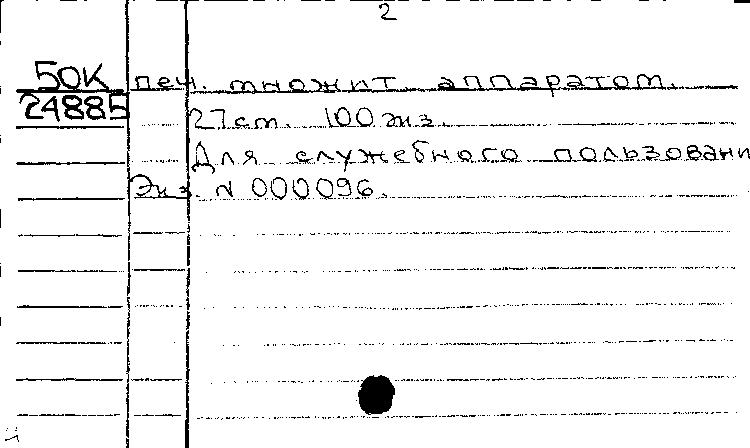 2
50К печ. множит. аппаратом.
24885 27 см. 100 экз.
Для служебного пользовани
Экз. N 000096.